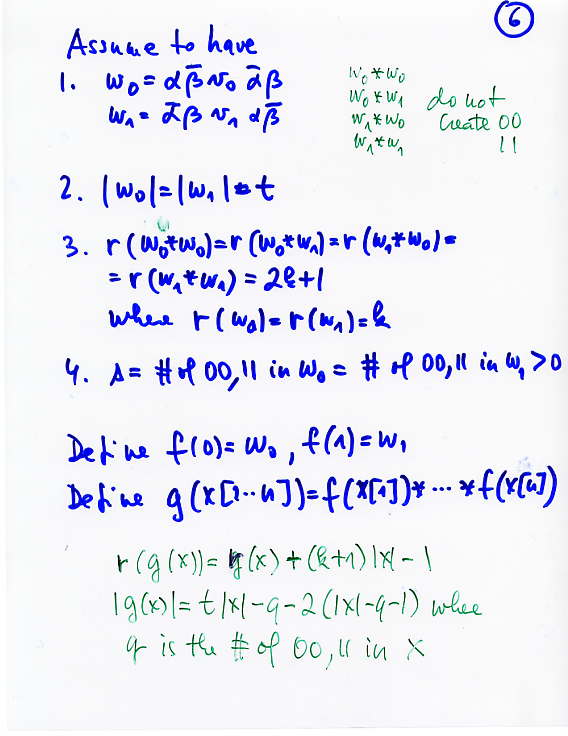 6
Assume to have
1. w₀ = αβ̄ v₀ ᾱβ
w₁ = ᾱβ v₁ αβ̄
w₀*w₀
w₀*w₁
w₁*w₀
w₁*w₁
do not
create 00
11
2. |w₀|=|w₁|=t
3. r(w₀*w₀)=r(w₀*w₁)=r(w₁*w₀)=
= r(w₁*w₁) = 2k+1
where r(w₀)=r(w₁)=k
4. s = # of 00,11 in w₀ = # of 00,11 in w₁ >0
Define f(0)= w₀, f(1)=w₁
Define g(x[1..n])=f(x[1])* ... *f(x[n])
r(g(x))= (x) + (k+1)|x| - 1
|g(x)|= t|x|-q-2(|x|-q-1) whee
q is the # of 00,11 in x